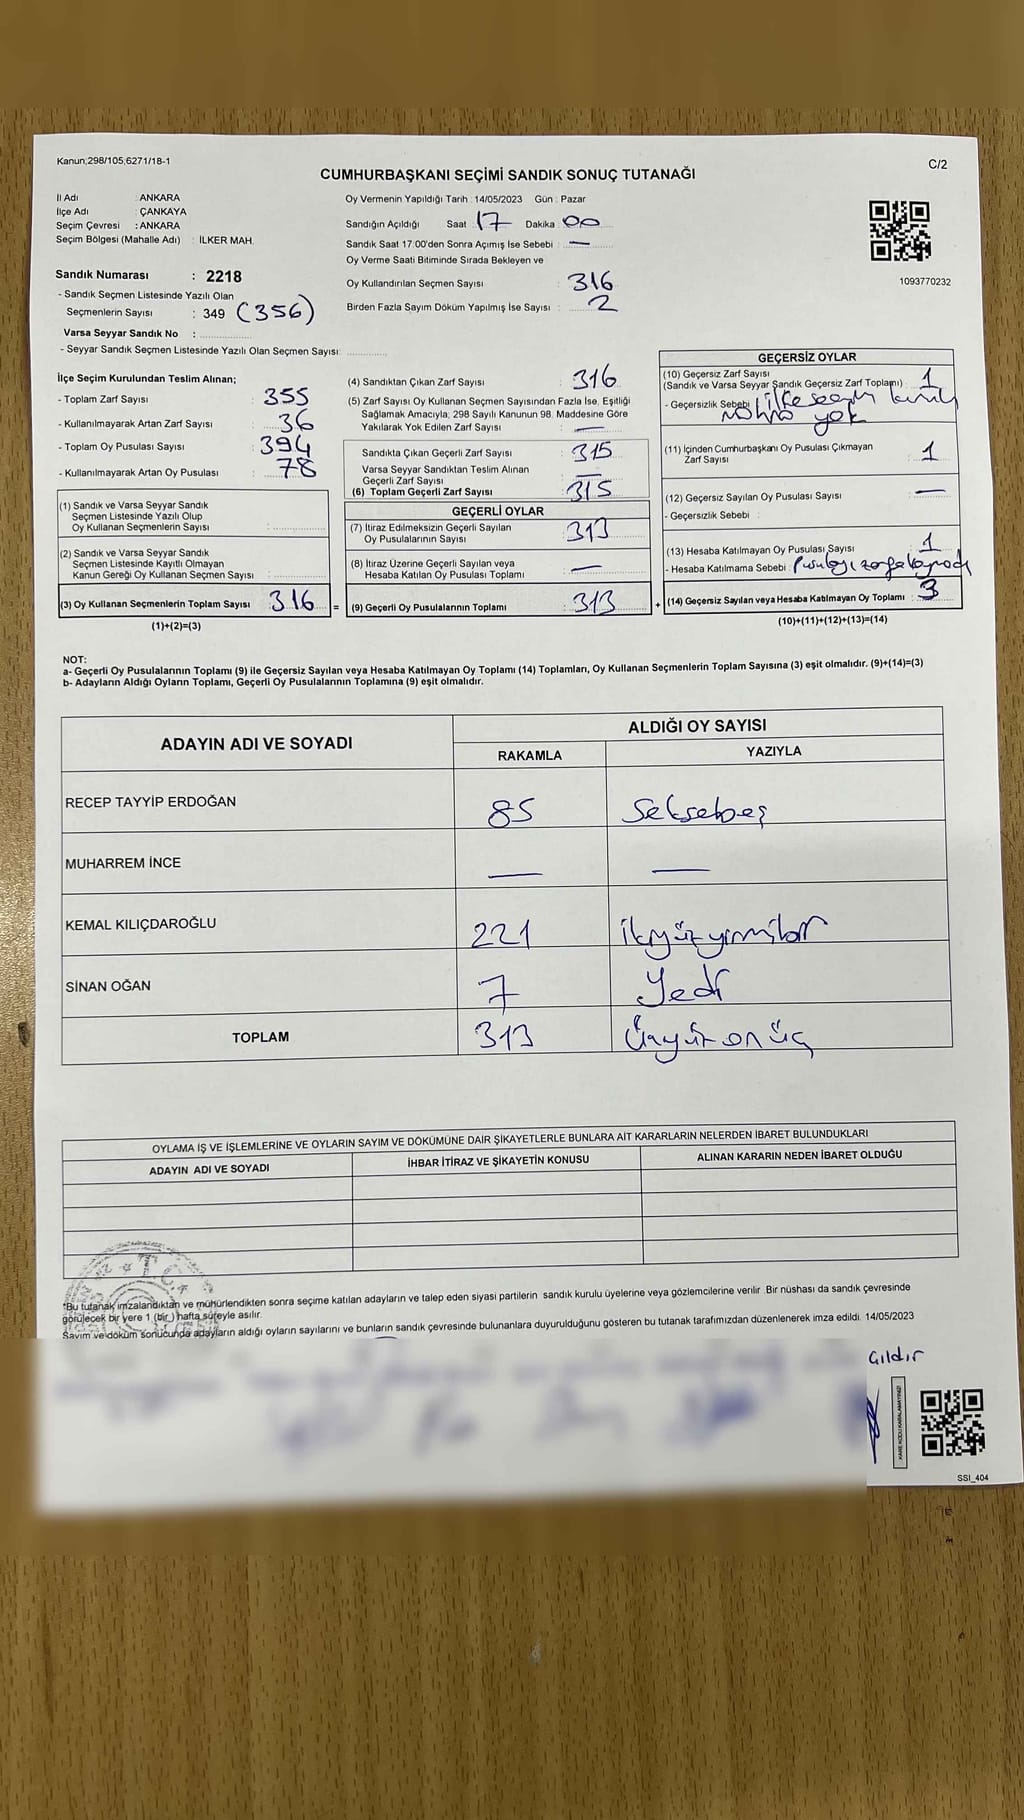 Kanun;298/105,6271/18-1
C/2
CUMHURBAŞKANI SEÇİMİ SANDIK SONUÇ TUTANAĞI
İl Adı : ANKARA
İlçe Adı : ÇANKAYA
Seçim Çevresi : ANKARA
Seçim Bölgesi (Mahalle Adı) : İLKER MAH.
Sandık Numarası : 2218
- Sandık Seçmen Listesinde Yazılı Olan
Seçmenlerin Sayısı : 349 (356)
Varsa Seyyar Sandık No :
- Seyyar Sandık Seçmen Listesinde Yazılı Olan Seçmen Sayısı:
Oy Vermenin Yapıldığı Tarih : 14/05/2023 Gün : Pazar
Sandığın Açıldığı Saat : 17 Dakika : 00
Sandık Saat 17:00'den Sonra Açımış İse Sebebi : —
Oy Verme Saati Bitiminde Sırada Bekleyen ve
Oy Kullandırılan Seçmen Sayısı : 316
Birden Fazla Sayım Döküm Yapılmış İse Sayısı : 2
1093770232
İlçe Seçim Kurulundan Teslim Alınan;
- Toplam Zarf Sayısı : 355
- Kullanılmayarak Artan Zarf Sayısı : 36
- Toplam Oy Pusulası Sayısı : 394
- Kullanılmayarak Artan Oy Pusulası : 78
(1) Sandık ve Varsa Seyyar Sandık
Seçmen Listesinde Yazılı Olup
Oy Kullanan Seçmenlerin Sayısı :
(2) Sandık ve Varsa Seyyar Sandık
Seçmen Listesinde Kayıtlı Olmayan
Kanun Gereği Oy Kullanan Seçmen Sayısı :
(3) Oy Kullanan Seçmenlerin Toplam Sayısı : 316 =
(1)+(2)=(3)
(4) Sandıktan Çıkan Zarf Sayısı : 316
(5) Zarf Sayısı Oy Kullanan Seçmen Sayısından Fazla İse, Eşitliği
Sağlamak Amacıyla; 298 Sayılı Kanunun 98. Maddesine Göre
Yakılarak Yok Edilen Zarf Sayısı : —
Sandıkta Çıkan Geçerli Zarf Sayısı : 315
Varsa Seyyar Sandıktan Teslim Alınan
Geçerli Zarf Sayısı : —
(6) Toplam Geçerli Zarf Sayısı : 315
GEÇERLİ OYLAR
(7) İtiraz Edilmeksizin Geçerli Sayılan
Oy Pusulalarının Sayısı : 313
(8) İtiraz Üzerine Geçerli Sayılan veya
Hesaba Katılan Oy Pusulası Toplamı : —
(9) Geçerli Oy Pusulalarının Toplamı : 313 +
GEÇERSİZ OYLAR
(10) Geçersiz Zarf Sayısı
(Sandık ve Varsa Seyyar Sandık Geçersiz Zarf Toplamı) : 1
- Geçersizlik Sebebi : ilçe seçim kurulu
mührü yok
(11) İçinden Cumhurbaşkanı Oy Pusulası Çıkmayan
Zarf Sayısı : 1
(12) Geçersiz Sayılan Oy Pusulası Sayısı : —
- Geçersizlik Sebebi :
(13) Hesaba Katılmayan Oy Pusulası Sayısı : 1
- Hesaba Katılmama Sebebi : Pusulayı zarfa koymadı
(14) Geçersiz Sayılan veya Hesaba Katılmayan Oy Toplamı : 3
(10)+(11)+(12)+(13)=(14)
NOT:
a- Geçerli Oy Pusulalarının Toplamı (9) ile Geçersiz Sayılan veya Hesaba Katılmayan Oy Toplamı (14) Toplamları, Oy Kullanan Seçmenlerin Toplam Sayısına (3) eşit olmalıdır. (9)+(14)=(3)
b- Adayların Aldığı Oyların Toplamı, Geçerli Oy Pusulalarının Toplamına (9) eşit olmalıdır.
ADAYIN ADI VE SOYADI
ALDIĞI OY SAYISI
RAKAMLA YAZIYLA
RECEP TAYYİP ERDOĞAN 85 Seksebeş
MUHARREM İNCE — —
KEMAL KILIÇDAROĞLU 221 ikiyüzyirmibir
SİNAN OĞAN 7 Yedi
TOPLAM 313 Üçyüzonüç
OYLAMA İŞ VE İŞLEMLERİNE VE OYLARIN SAYIM VE DÖKÜMÜNE DAİR ŞİKAYETLERLE BUNLARA AİT KARARLARIN NELERDEN İBARET BULUNDUKLARI
ADAYIN ADI VE SOYADI İHBAR İTİRAZ VE ŞİKAYETİN KONUSU ALINAN KARARIN NEDEN İBARET OLDUĞU
T.C.
*Bu tutanak imzalandıktan ve mühürlendikten sonra seçime katılan adayların ve talep eden siyasi partilerin sandık kurulu üyelerine veya gözlemcilerine verilir. Bir nüshası da sandık çevresinde
görülecek bir yere 1 (bir) hafta süreyle asılır.
Sayım ve döküm sonucunda adayların aldığı oyların sayılarını ve bunların sandık çevresinde bulunanlara duyurulduğunu gösteren bu tutanak tarafımızdan düzenlenerek imza edildi. 14/05/2023
Çıldır
KARE KODU KARALAMAYINIZ!
SSI_404